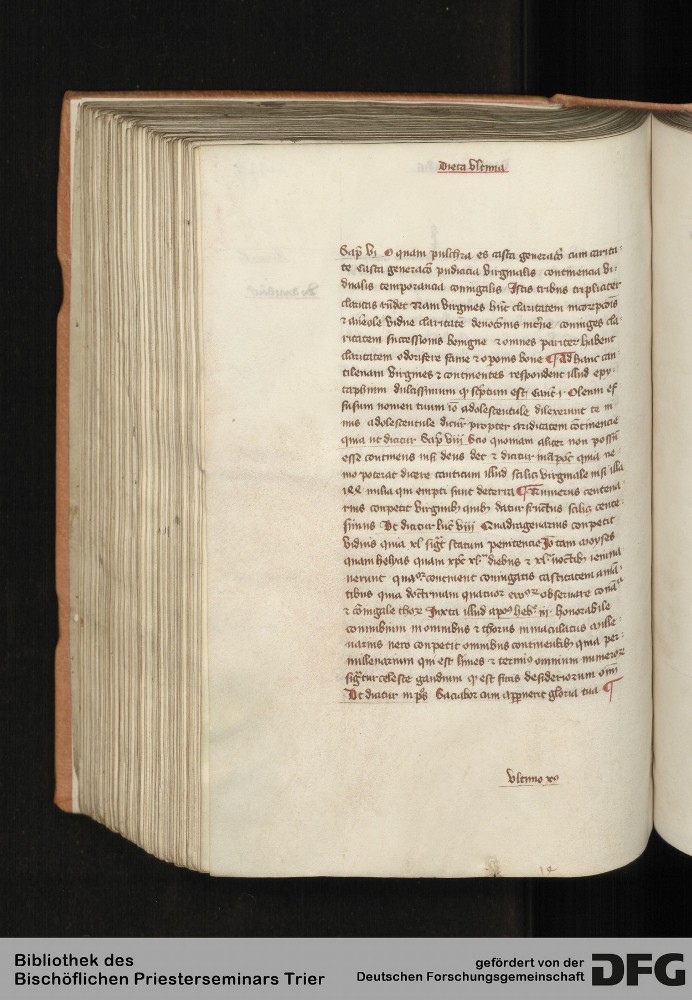 Dieta Vltima
Sap̄ vi O quam pulchra es casta generac̄o cum carita⸗
te Casta generac̄o pudicia virginalis continencia vi⸗
dualis temporancia coniugalis Istis tribus tripliciter
claritas rn̄det Nam virgines hn̄t claritatem incorpc̄ōis
& aureole vidue claritatē deuoc̄onis int̄ne coniuges cla⸗
ritatem successionis benigne & omnes pariter habent
claritatem odorifere fame & opīonis bone ¶ ad hanc can⸗
tilenam virgines & continentes respondent illud epy⸗
taphium dulcissimum qd̄ sc̄ptum est Cant̄ i Oleum ef⸗
fusum nomen tuum iō adolescentule dilexerunt te ni⸗
mis adolescentule dicūr propter ariditatem cōtinencie
quia ut dicitur Sap̄ viij Scio quoniam aliter non possū
esse continens nisi deus det & dicitur in apoc̄ quia ne⸗
mo poterat dicere canticum illud scilic̄ virginale nisi illa
milia qui empti sunt de terra ¶ Numerus centena⸗
rius conpetit virginib⁊ quib⁊ datur fructus scilic̄ cente⸗
simus Vt dicitur luc̄ viij Quadragenarius conpetit
viduis quia xl sigt̄ statum penitencie Iō tam moyses
quam helyas quam xpc̄ xl diebus & xl noctib⁊ ieiuna⸗
uerunt continent coniugatis castitatem
tibus quia doctrinam quatuor obseruare
& cōiugale thor Iuxta illud apo heb iij honorabile
connubium in omnibus & thorus inmaculatus mille⸗
narius uero conpetit omnibus continentib⁊ quia per
millenarium qui est limes & terminus omnium numeror
sigt̄ur celeste gaudium qd̄ est finis desideriorum oīm
Vt dicitur in ps̄ Saciabor cum apparuerit gloria tua ¶
Vltimo
Bibliothek des
Bischöflichen Priesterseminars Trier
gefördert von der
Deutschen Forschungsgemeinschaft
DFG